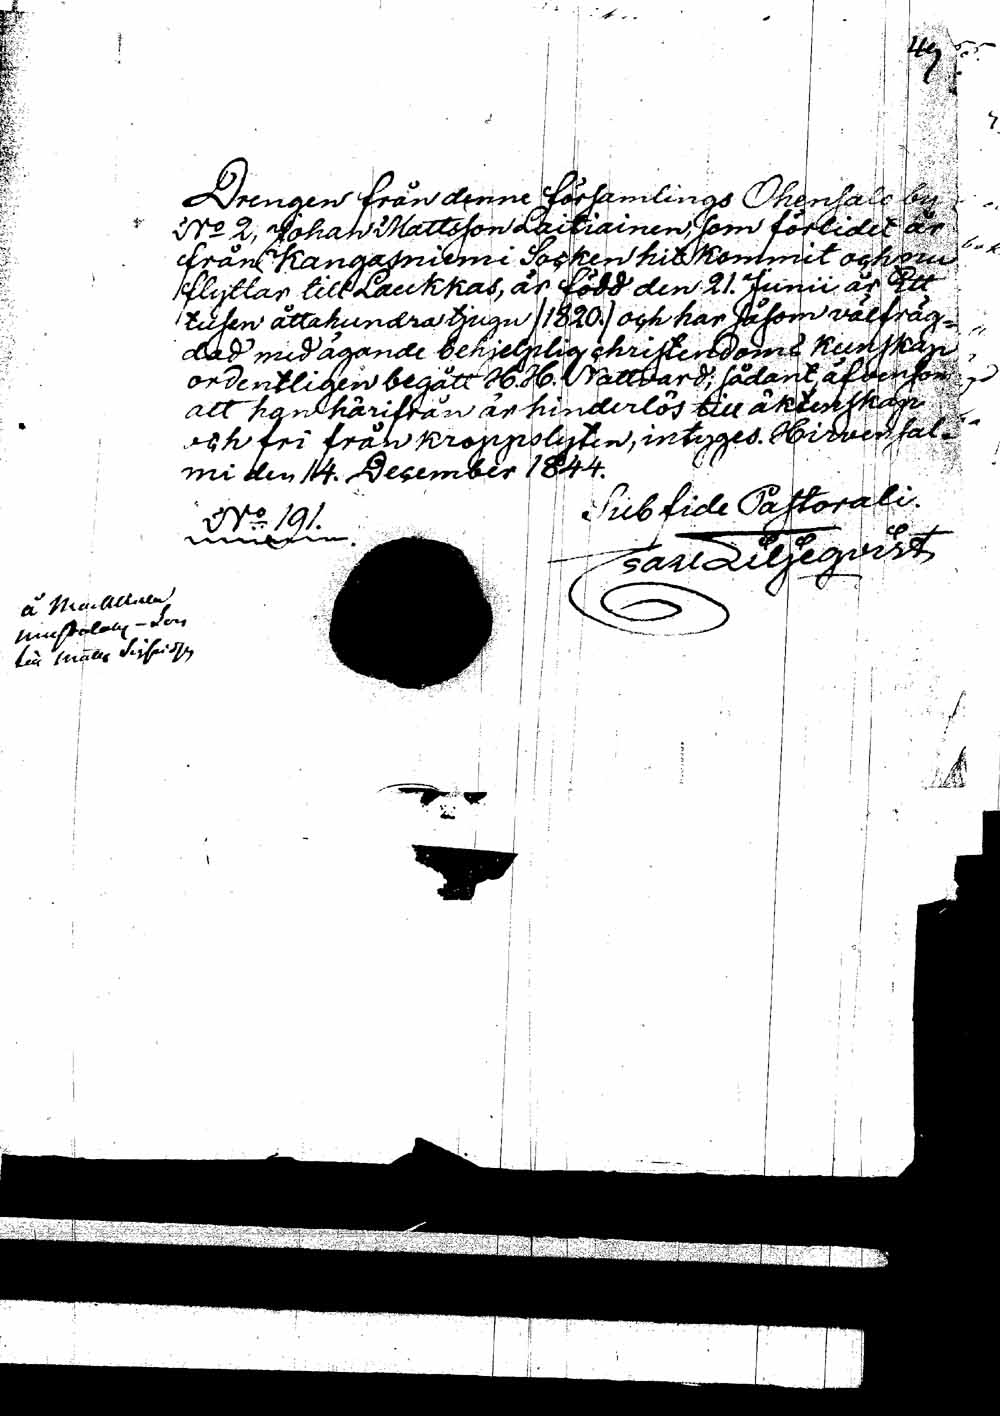 49
Drengen från denne församlings Ohensalo by
No 2, Johan Mattsson Laitiainen, som förlidet år
från Kangasniemi Socken hit kommit och nu
flyttar till Laukkas, är född den 21. Junii år Ett
tusen åttahundra tjugu (1820.) och har såsom välfräg=
dad med ägande behjelplig christendoms kunskap
ordentligen begått H. H. Nattvard; sådant, äfvensom
att han härifrån är hinderlös till äktenskap
och fri från kroppslyten, intyges. Hirvensal-
mi den 14. December 1844.
No 191.
Sub fide Pastorali.
Carl Liljeqvist